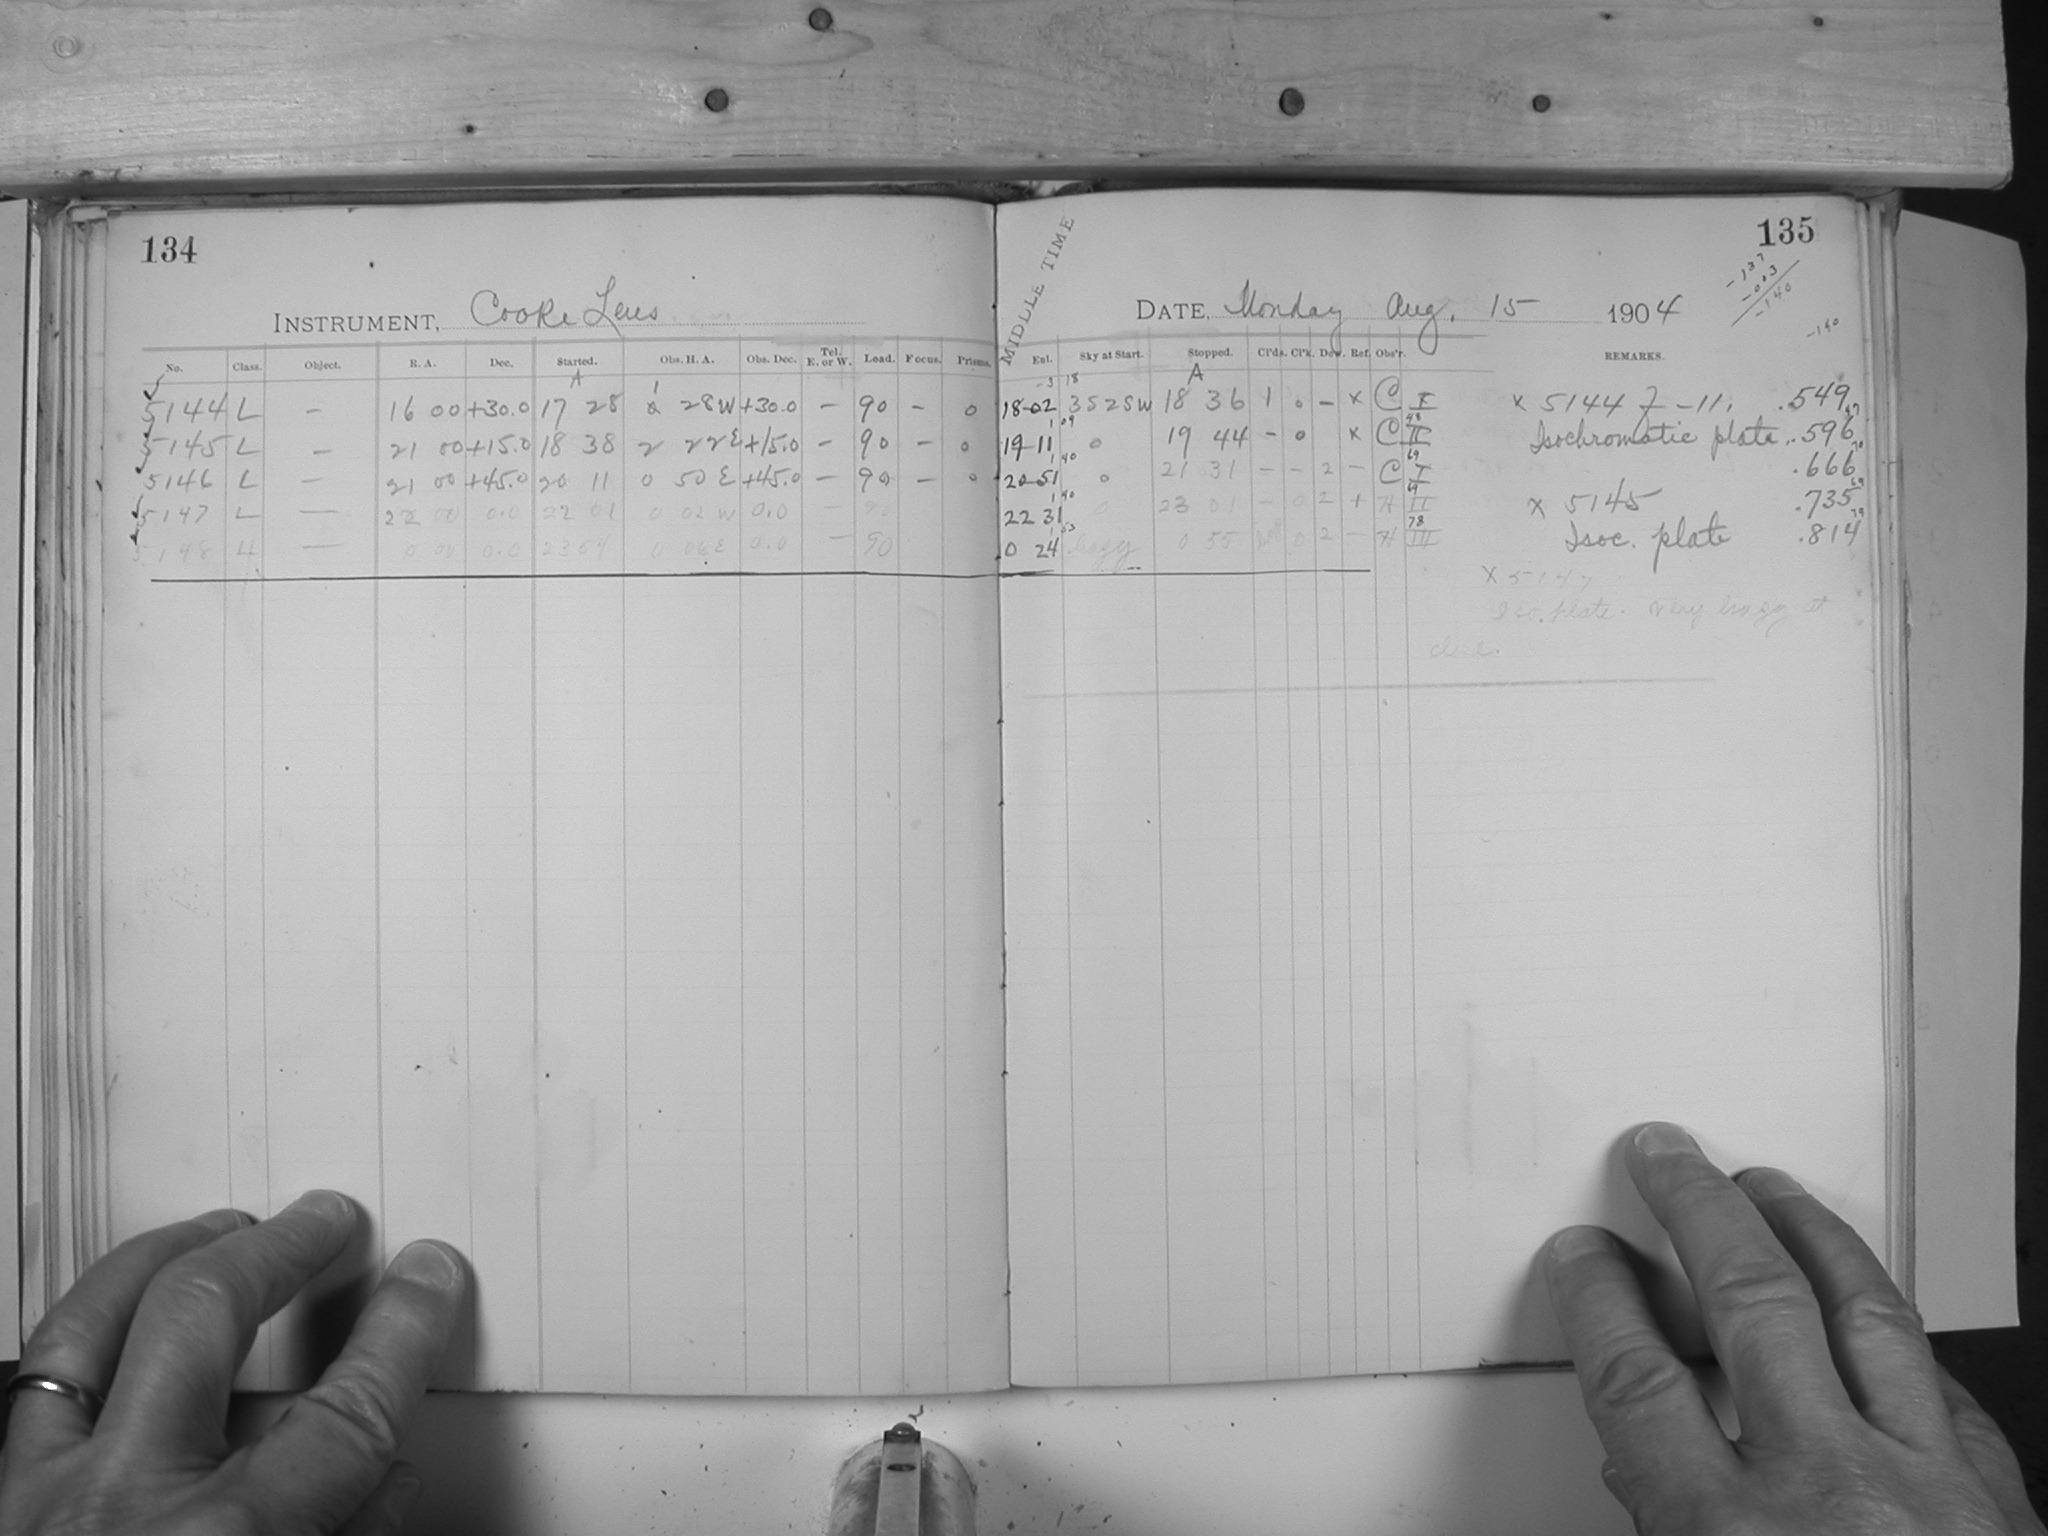 134
INSTRUMENT, Cooke Lens
No. Class. Object. R. A. Dec. Started. Obs. H. A. Obs. Dec. Tel. E. or W. Load. Focus. Prisms.
A
5144 L — 16 00 +30.0 17 28 1 28 W +30.0 — 90 — 0
5145 L — 21 00 +15.0 18 38 2 22 E +15.0 — 90 — 0
5146 L — 21 00 +45.0 20 11 0 50 E +45.0 — 90 — 0
5147 L — 22 00 0.0 22 01 0 02 W 0.0 — 90
5148 — 0 00 0.0 23 54 0 06 E 0.0 — 90
135
-137
-003
-140
-140
MIDDLE TIME
DATE, Monday Aug. 15 1904
Ext. Sky at Start. Stopped. Cl'ds. Cl'k. Dew. Ref. Obs'r. REMARKS.
-3 18 A
18-02 3S2SW 18 36 1 0 — x C I x 5144 Z-11. .549
1 09 48 47
19-11 0 19 44 — 0 x C II Isochromatic plate. .596
1 40 69 70
20-51 0 21 31 — — 2 — C I .666
1 40 69 69
22 31 0 23 01 — 0 2 + H II x 5145 .735
1 53 78 79
0 24 hazy 0 55 0 2 — H III Isoc. plate .814
x 5147
Iso. plate. Very hazy at